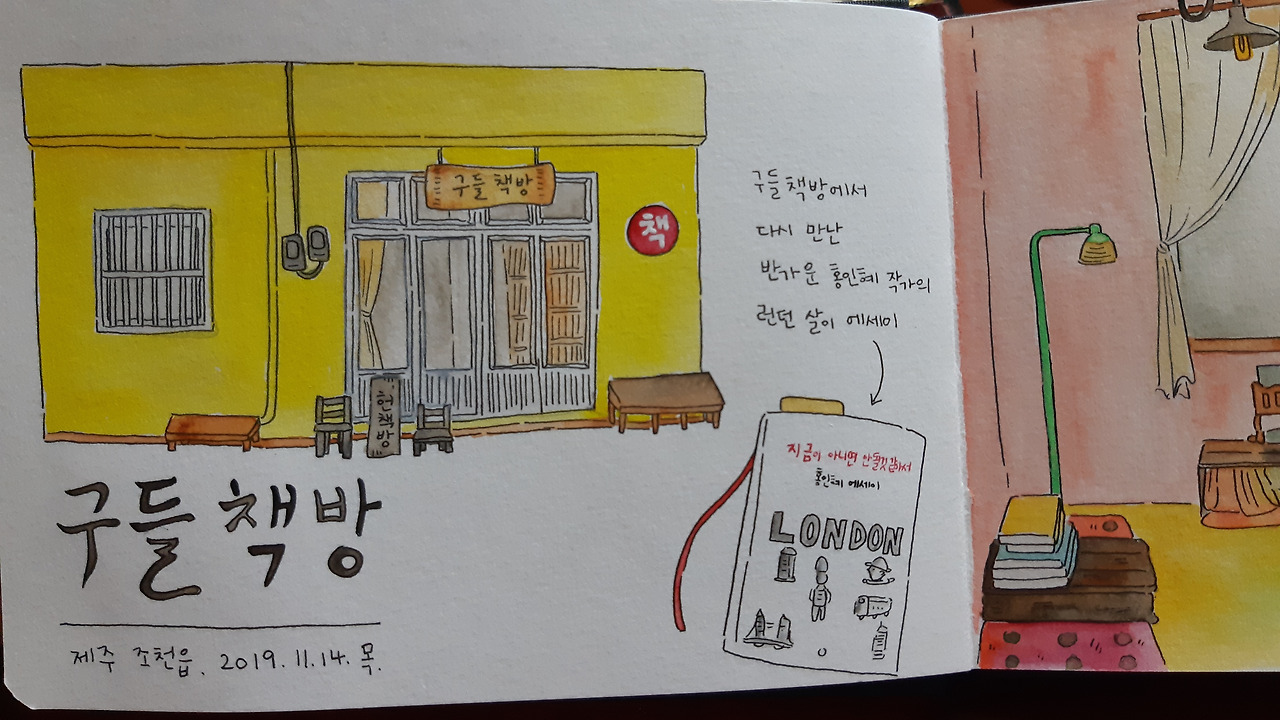 구들 책방
책
헌책방
구들 책방
제주 조천읍. 2019.11.14. 목.
구들 책방에서
다시 만난
반가운 홍인혜 작가의
런던 살이 에세이
지금이 아니면 안 될 것 같아서
홍인혜 에세이
LONDON